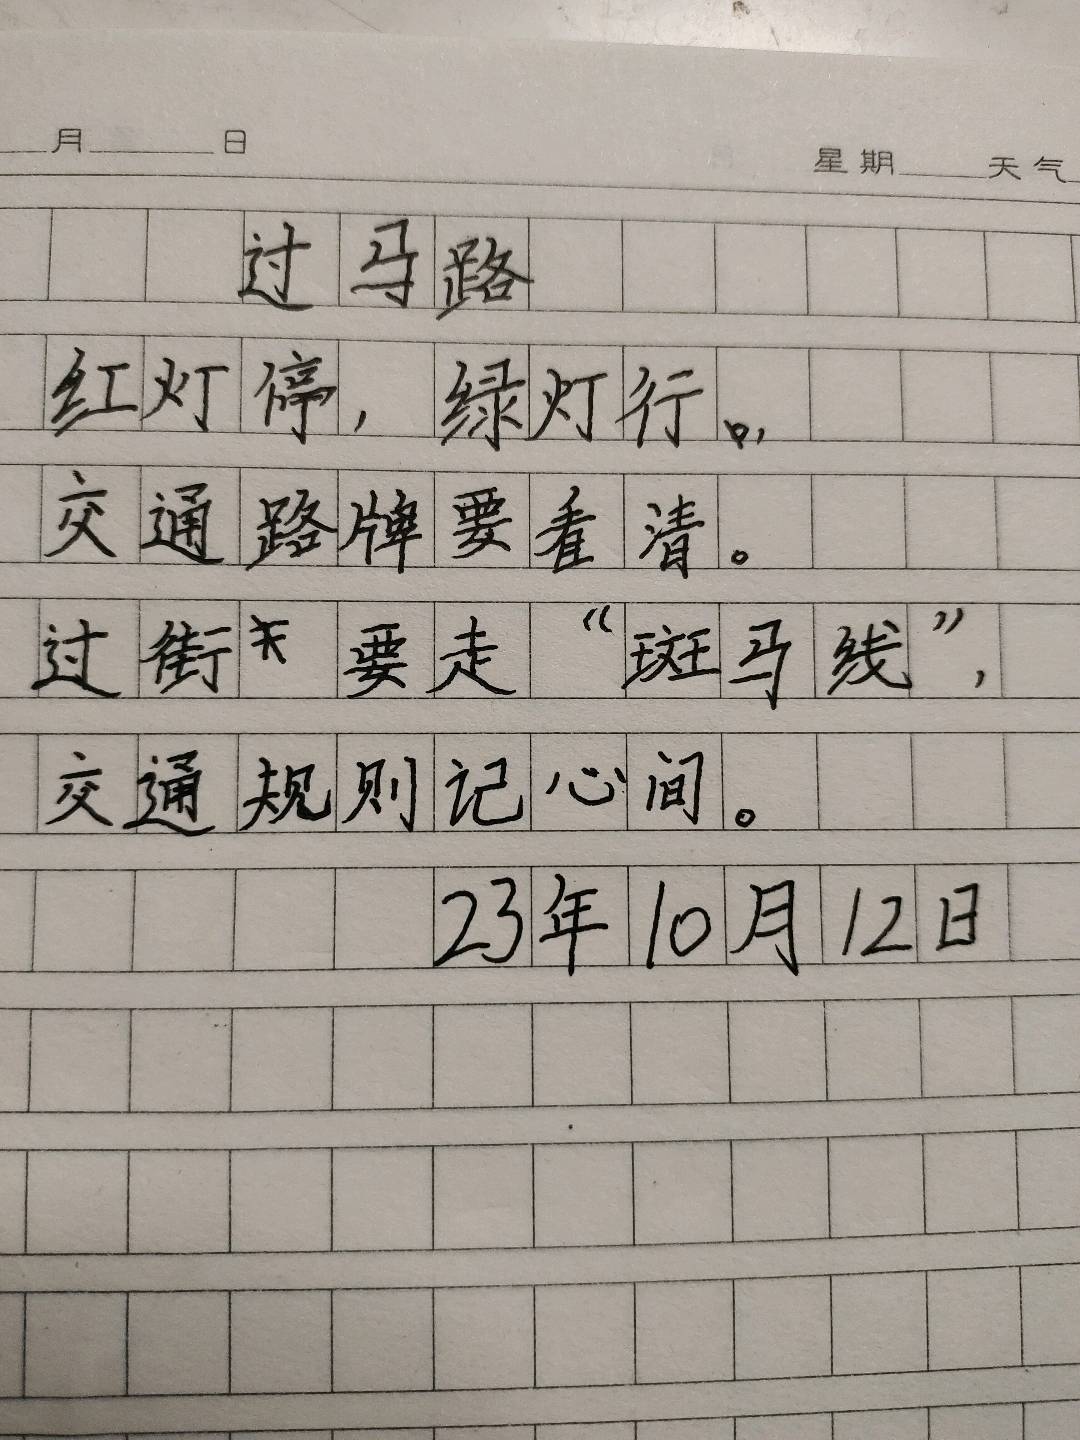 月 日 星期 天气
过马路
红灯停，绿灯行。，
交通路牌要看清。
过街 要走“斑马线”，
交通规则记心间。
23年10月12日